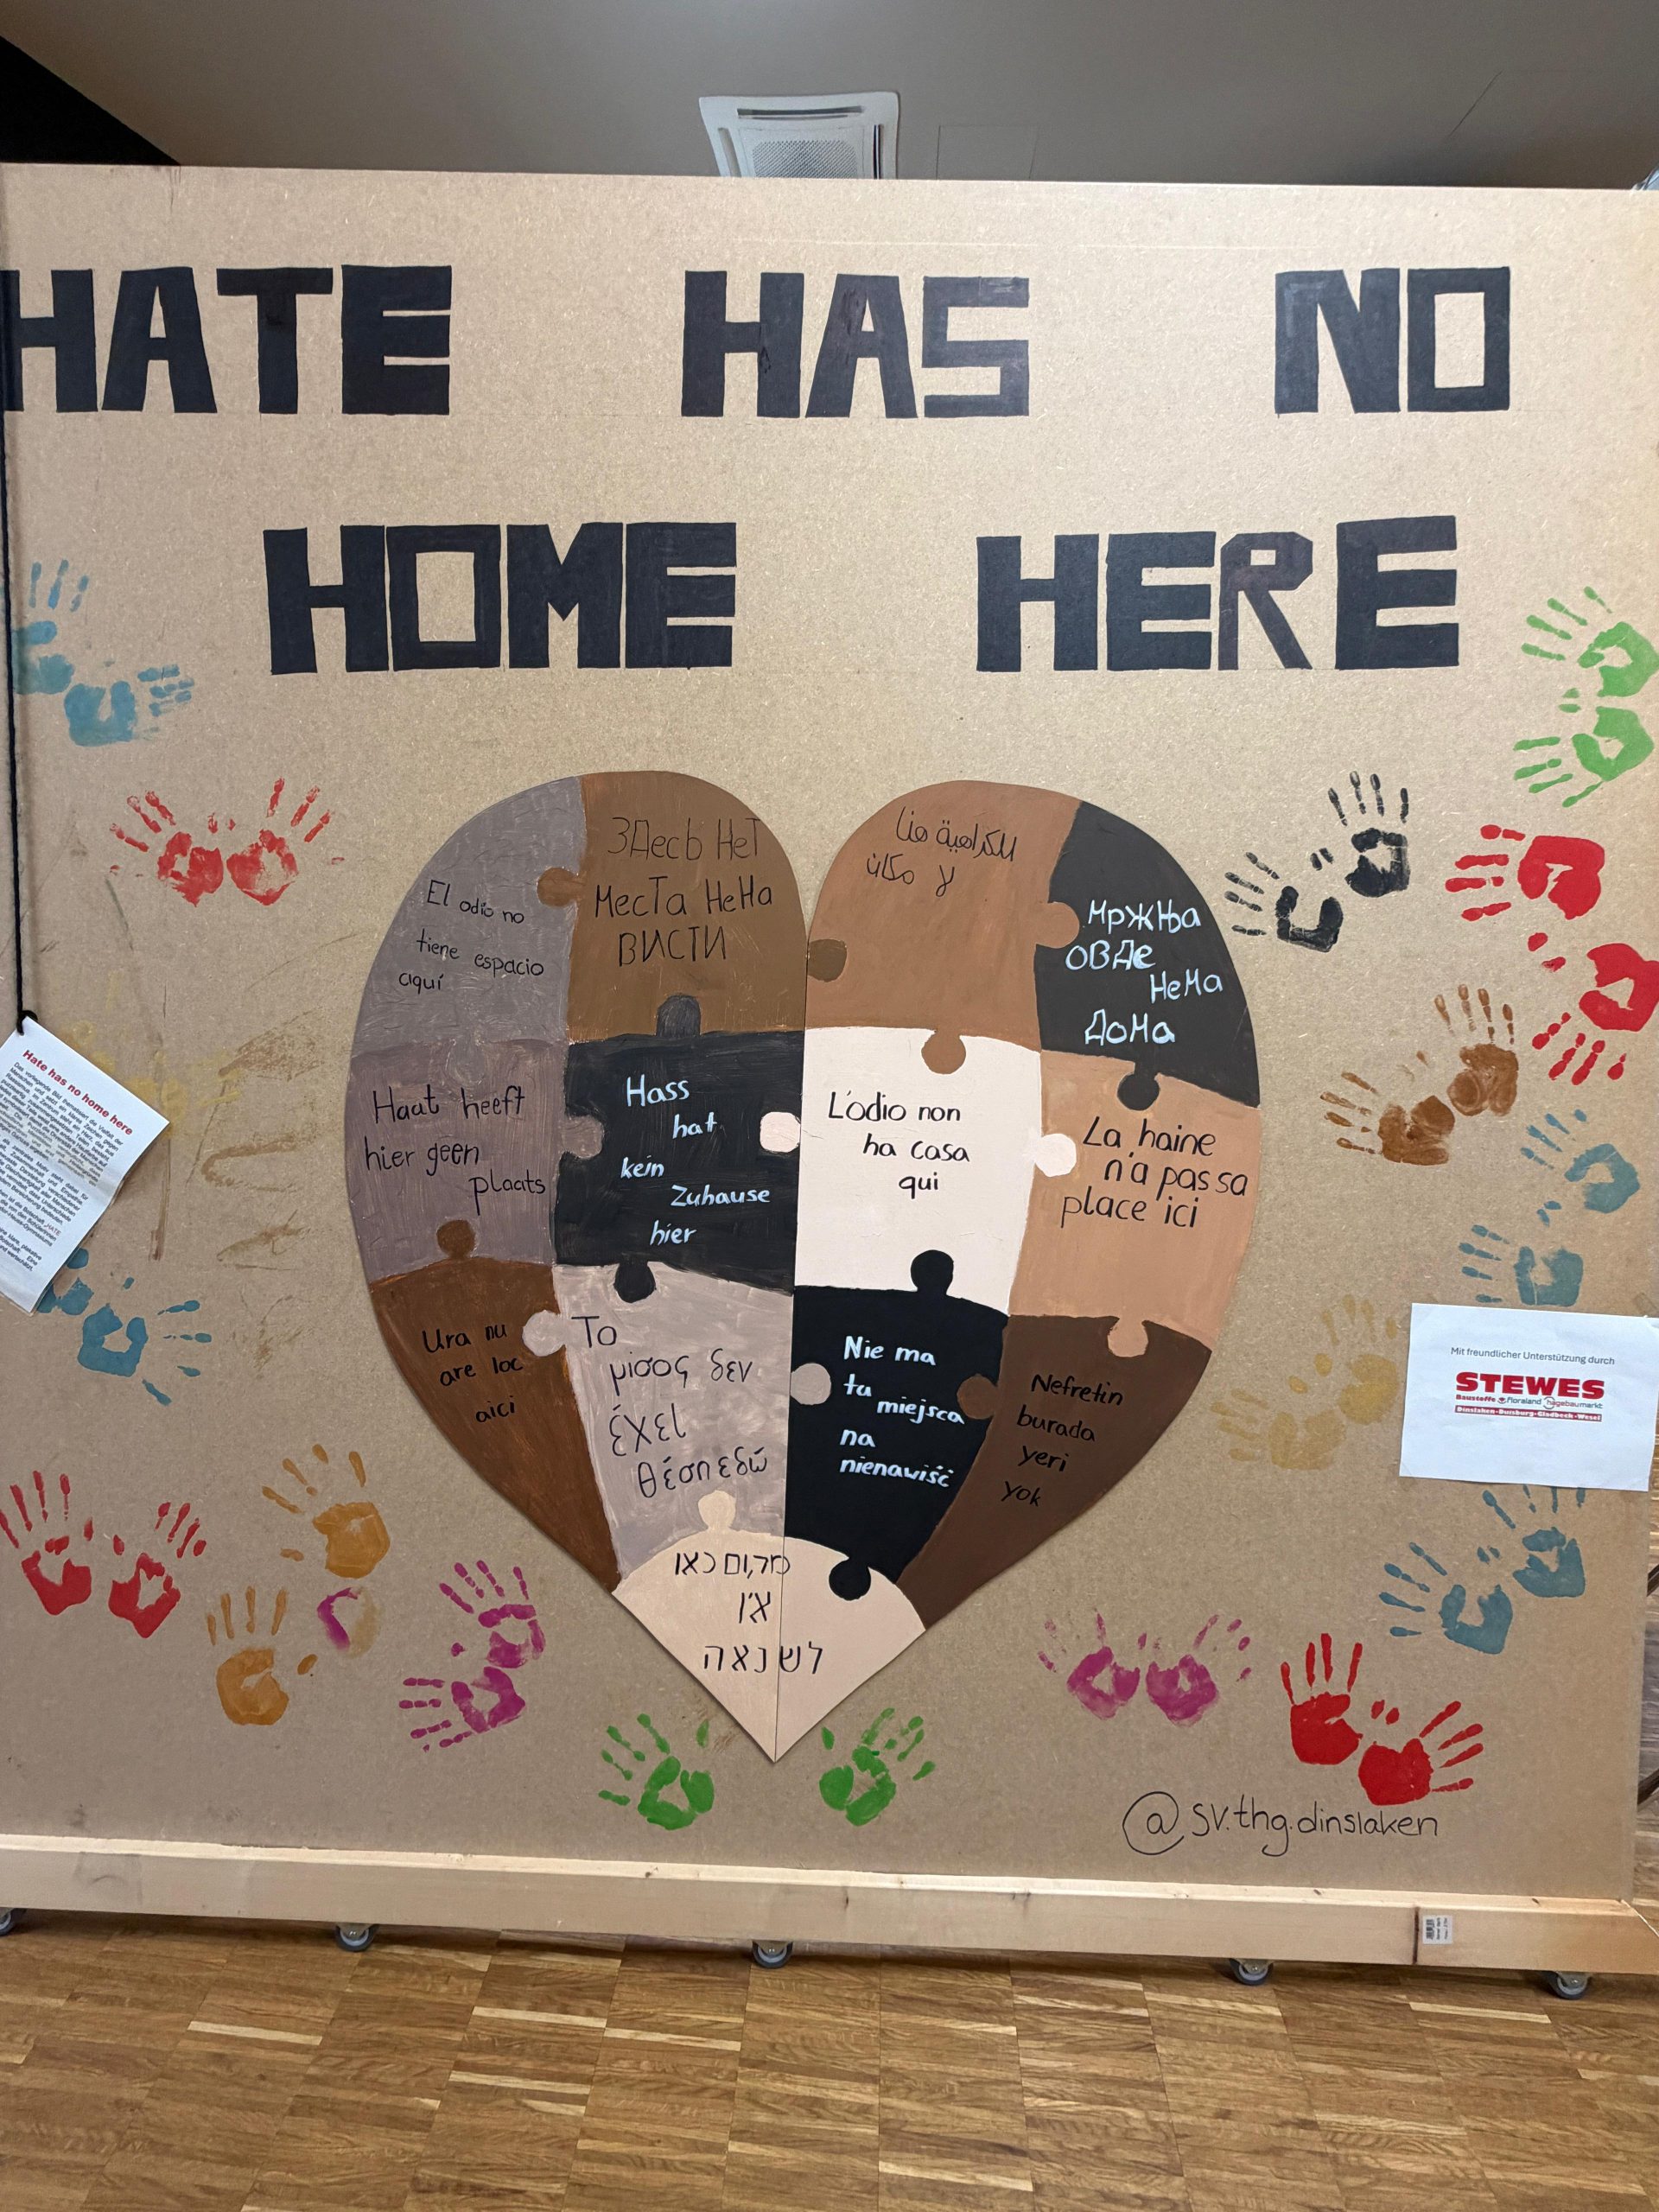 HATE HAS NO
HOME HERE
El odio no
tiene espacio
aquí
ЗДесЬ НеТ
МесТа НеНа
ВИСТИ
للكراهية هنا
لا مكان
МржЊа
ОВДе
НеМа
ДоМа
Haat heeft
hier geen
plaats
Hass
hat
kein
Zuhause
hier
L'odio non
ha casa
qui
La haine
n'a pas sa
place ici
Ura nu
are loc
aici
Το
μίσος δεν
έχει
θέση εδώ
Nie ma
tu
miejsca
na
nienawiść
Nefretin
burada
yeri
yok
מקום כאן
אין
לשנאה
@sv.thg.dinslaken
Hate has no home here
Mit freundlicher Unterstützung durch
STEWES
Baustoffe floraland hagebaumarkt
Dinslaken-Duisburg-Gladbeck-Wesel